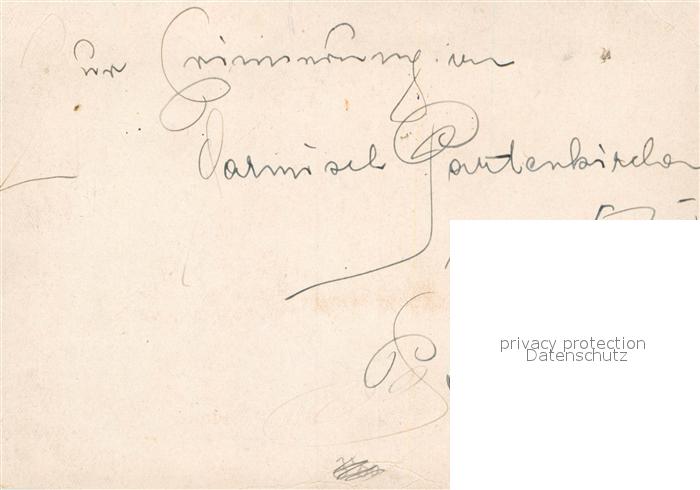 Zur Erinnerung an
Garmisch Partenkirchen
privacy protection
Datenschutz